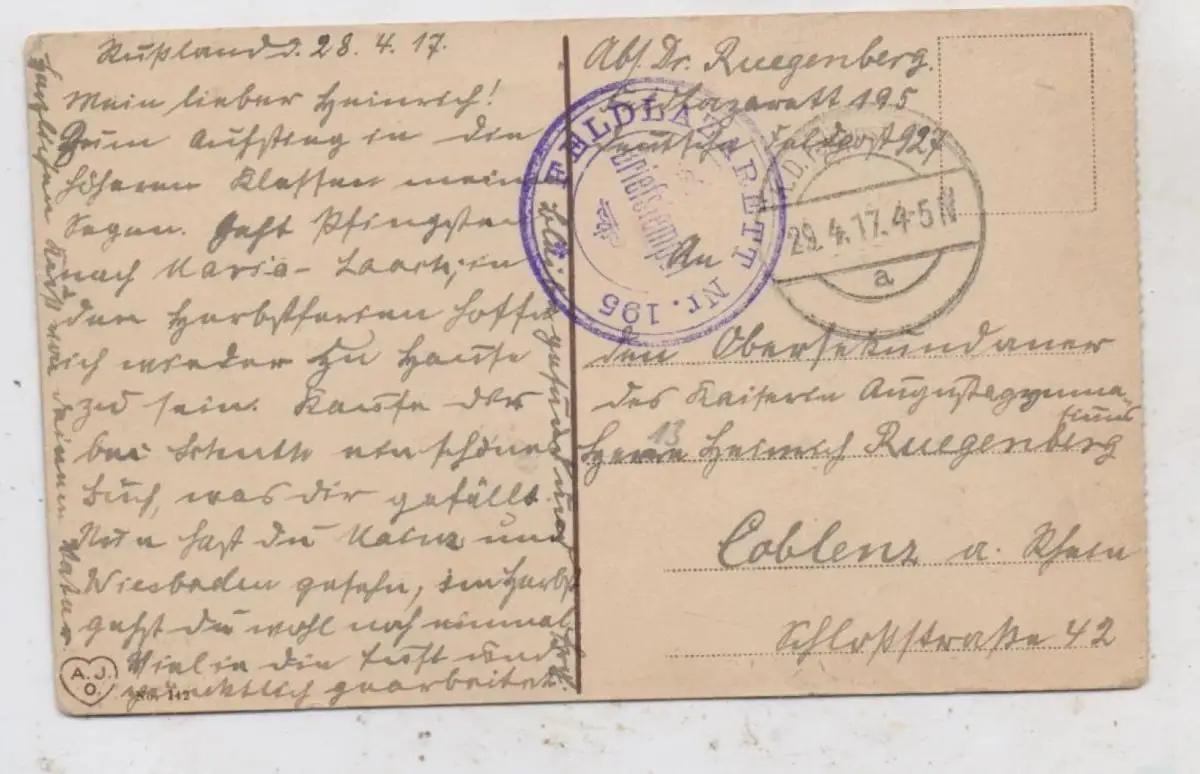 Rußland d. 28. 4. 17.
Mein lieber Heinrich!
Zum Aufstieg in die
höheren Klassen mein
Segen. Geht Pfingsten
nach Maria-Laach; in
den Herbstferien hoffe
ich wieder zu Hause
zu sein. Kaufe dir
bei ein schönes
Buch, was dir gefällt.
Nun hast du Mainz und
Wiesbaden gesehn, im Herbst
gehst du wohl noch einmal
Viel in die Luft und
gearbeitet
gesund und
Herzlichen von deinem Vater
A. J. O.
No. 112
Abs. Dr. Ruegenberg.
Feldlazarett 195
Deutsche Feldpost 927
FELDLAZARETT Nr. 195
Briefstempel
29. 4. 17. 4-5 N
a
An
den Obersekundaner
des Kaiserin Augustagymna-
siums
13
Herrn Heinrich Ruegenberg
Coblenz a. Rhein
Schloßstraße 42